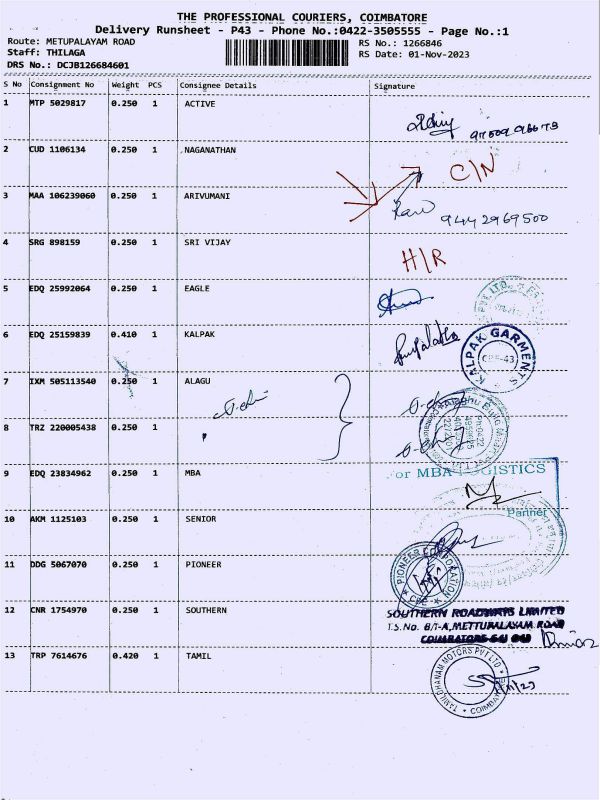 THE PROFESSIONAL COURIERS, COIMBATORE
Delivery Runsheet - P43 - Phone No.:0422-3505555 - Page No.:1
Route: METUPALAYAM ROAD RS No.: 1266846
Staff: THILAGA RS Date: 01-Nov-2023
DRS No.: DCJB126684601
S No Consignment No Weight PCS Consignee Details Signature
1 MTP 5029817 0.250 1 ACTIVE
2 CUD 1106134 0.250 1 NAGANATHAN
C/N
3 MAA 106239060 0.250 1 ARIVUMANI
9442969500
4 SRG 898159 0.250 1 SRI VIJAY
H/R
5 EDQ 25992064 0.250 1 EAGLE
PVT LTD
6 EDQ 25159839 0.410 1 KALPAK
KALPAK GARMENTS
CBE-43
7 IXM 505113540 0.250 1 ALAGU
8 TRZ 220005438 0.250 1
9 EDQ 23834962 0.250 1 MBA
or MBA LOGISTICS
Partner
10 AKM 1125103 0.250 1 SENIOR
11 DDG 5067070 0.250 1 PIONEER
PIONEER CORPORATION
12 CNR 1754970 0.250 1 SOUTHERN
SOUTHERN ROADWAYS LIMITED
T.S.No. 8/1-A, METTUPALAYAM ROAD
13 TRP 7614676 0.420 1 TAMIL
TAMILDHANAM MOTORS PVT LTD